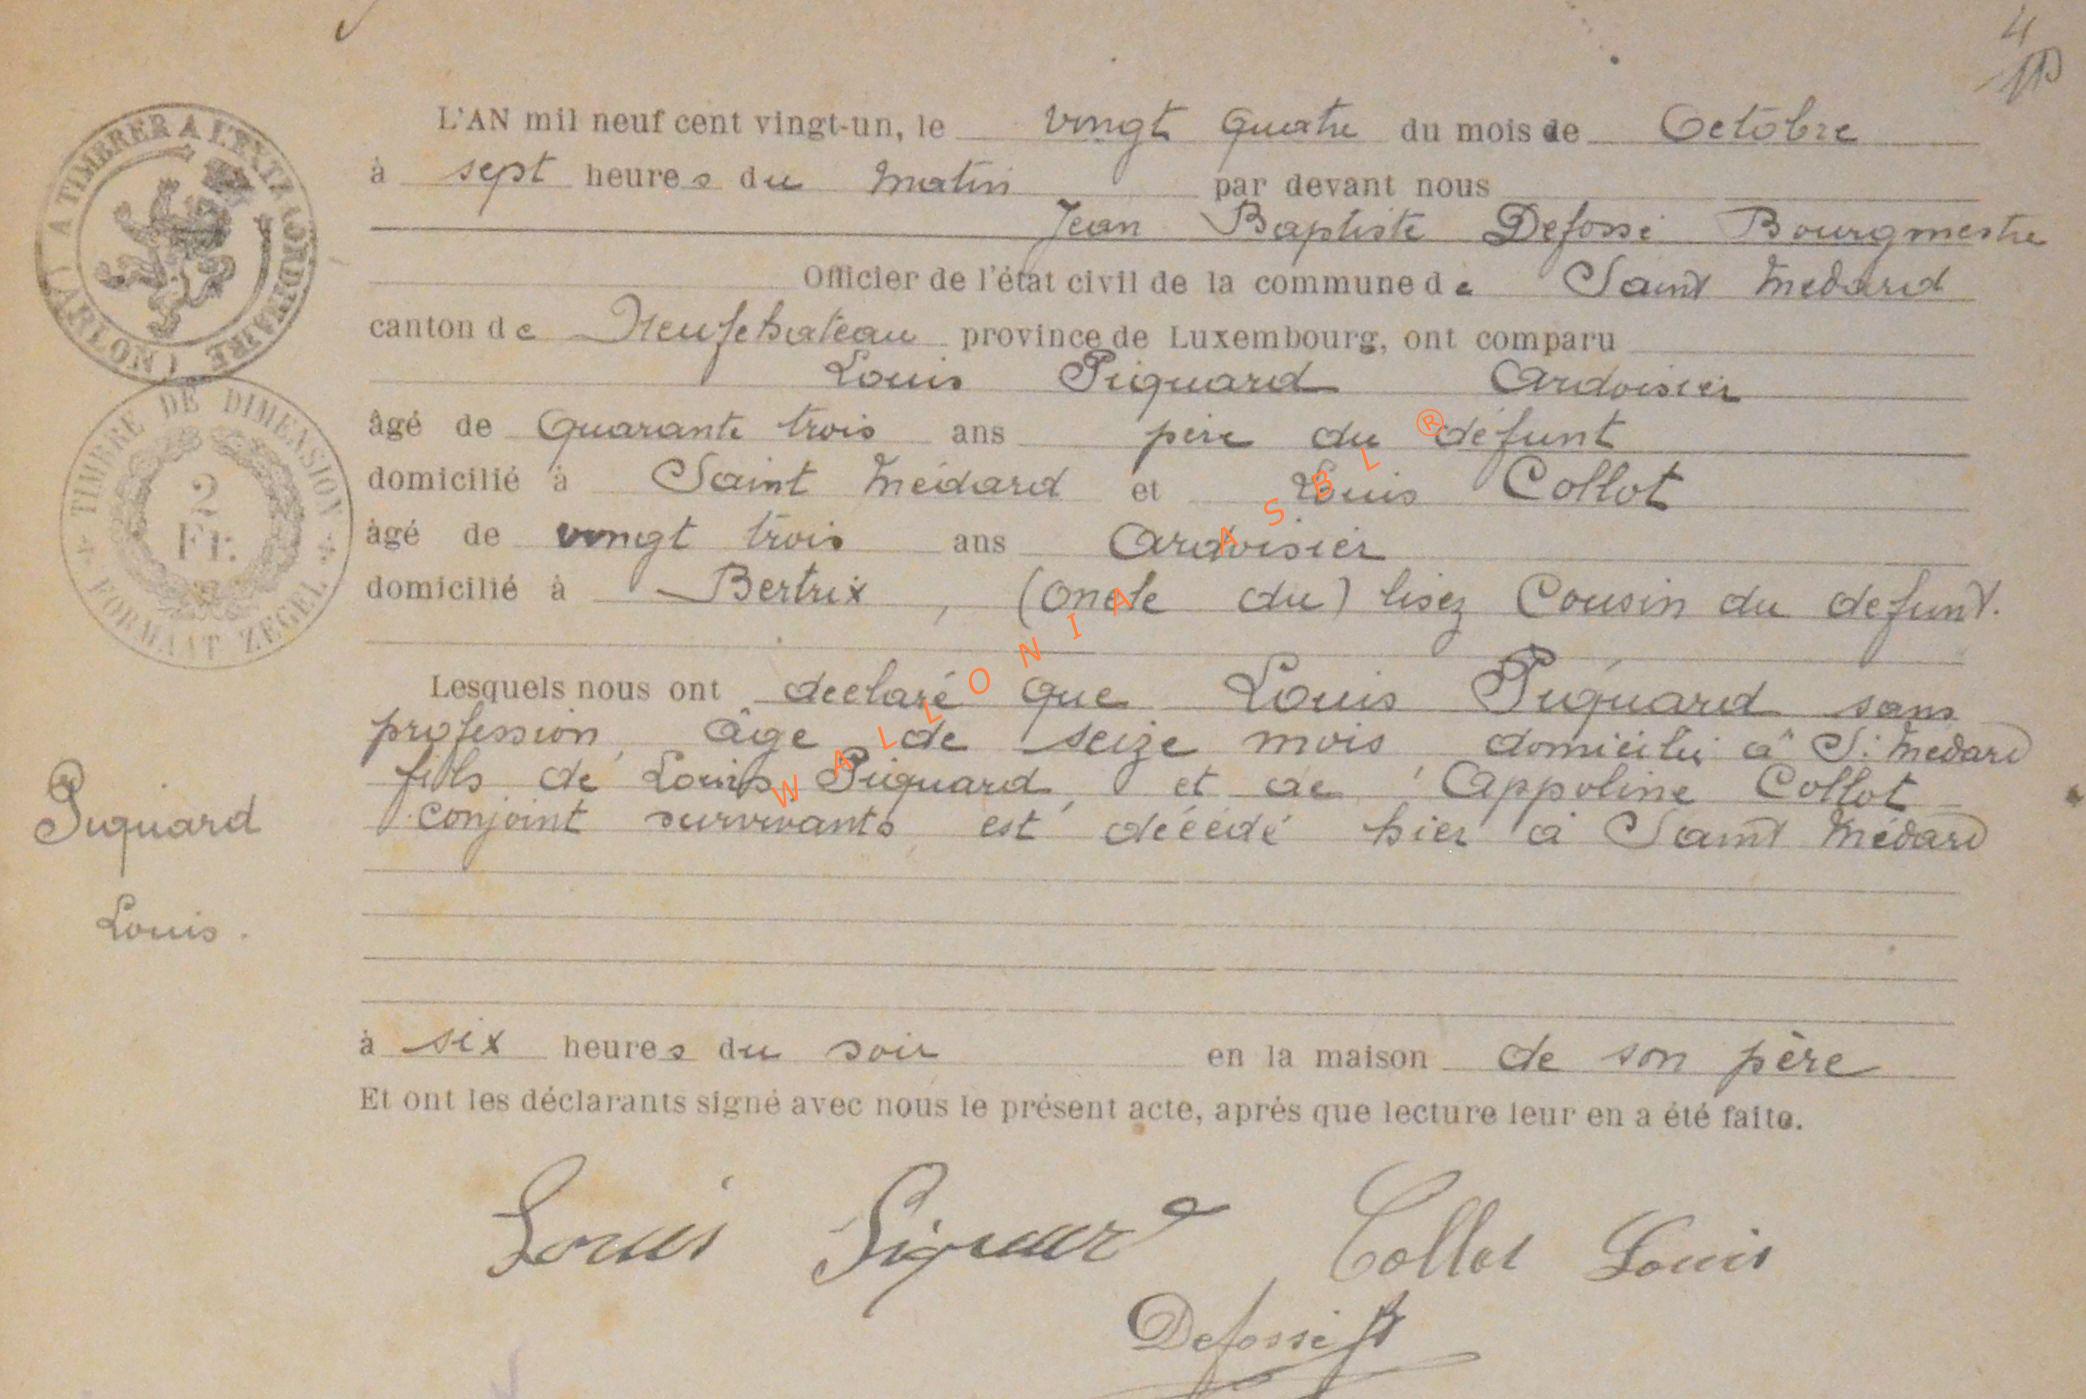 4
L'AN mil neuf cent vingt-un, le vingt quatre du mois de Octobre
à sept heures du matin par devant nous
Jean Baptiste Defosse Bourgmestre
Officier de l'état civil de la commune de Saint Medard
canton de Neufchateau province de Luxembourg, ont comparu
Louis Piquard Ardoisier
âgé de Quarante trois ans père du défunt
domicilié à Saint Médard et Louis Collot
âgé de vingt trois ans Ardoisier
domicilié à Bertrix, (oncle du) lisez Cousin du defunt.
Lesquels nous ont declaré que Louis Piquard sans
profession, âge de seize mois, domicilié à St Medard
fils de Louis Piquard, et de Appoline Collot
conjoint survivants est décédé hier à Saint Médard
Piquard
Louis.
à six heures du soir en la maison de son père
Et ont les déclarants signé avec nous le présent acte, après que lecture leur en a été faite.
Louis Piquard Collot Louis
Defosse
A TIMBRER A L'EXTRAORDINAIRE (ARLON)
TIMBRE DE DIMENSION
2
Fr.
FORMAAT ZEGEL
WALLONIA ASBL ®